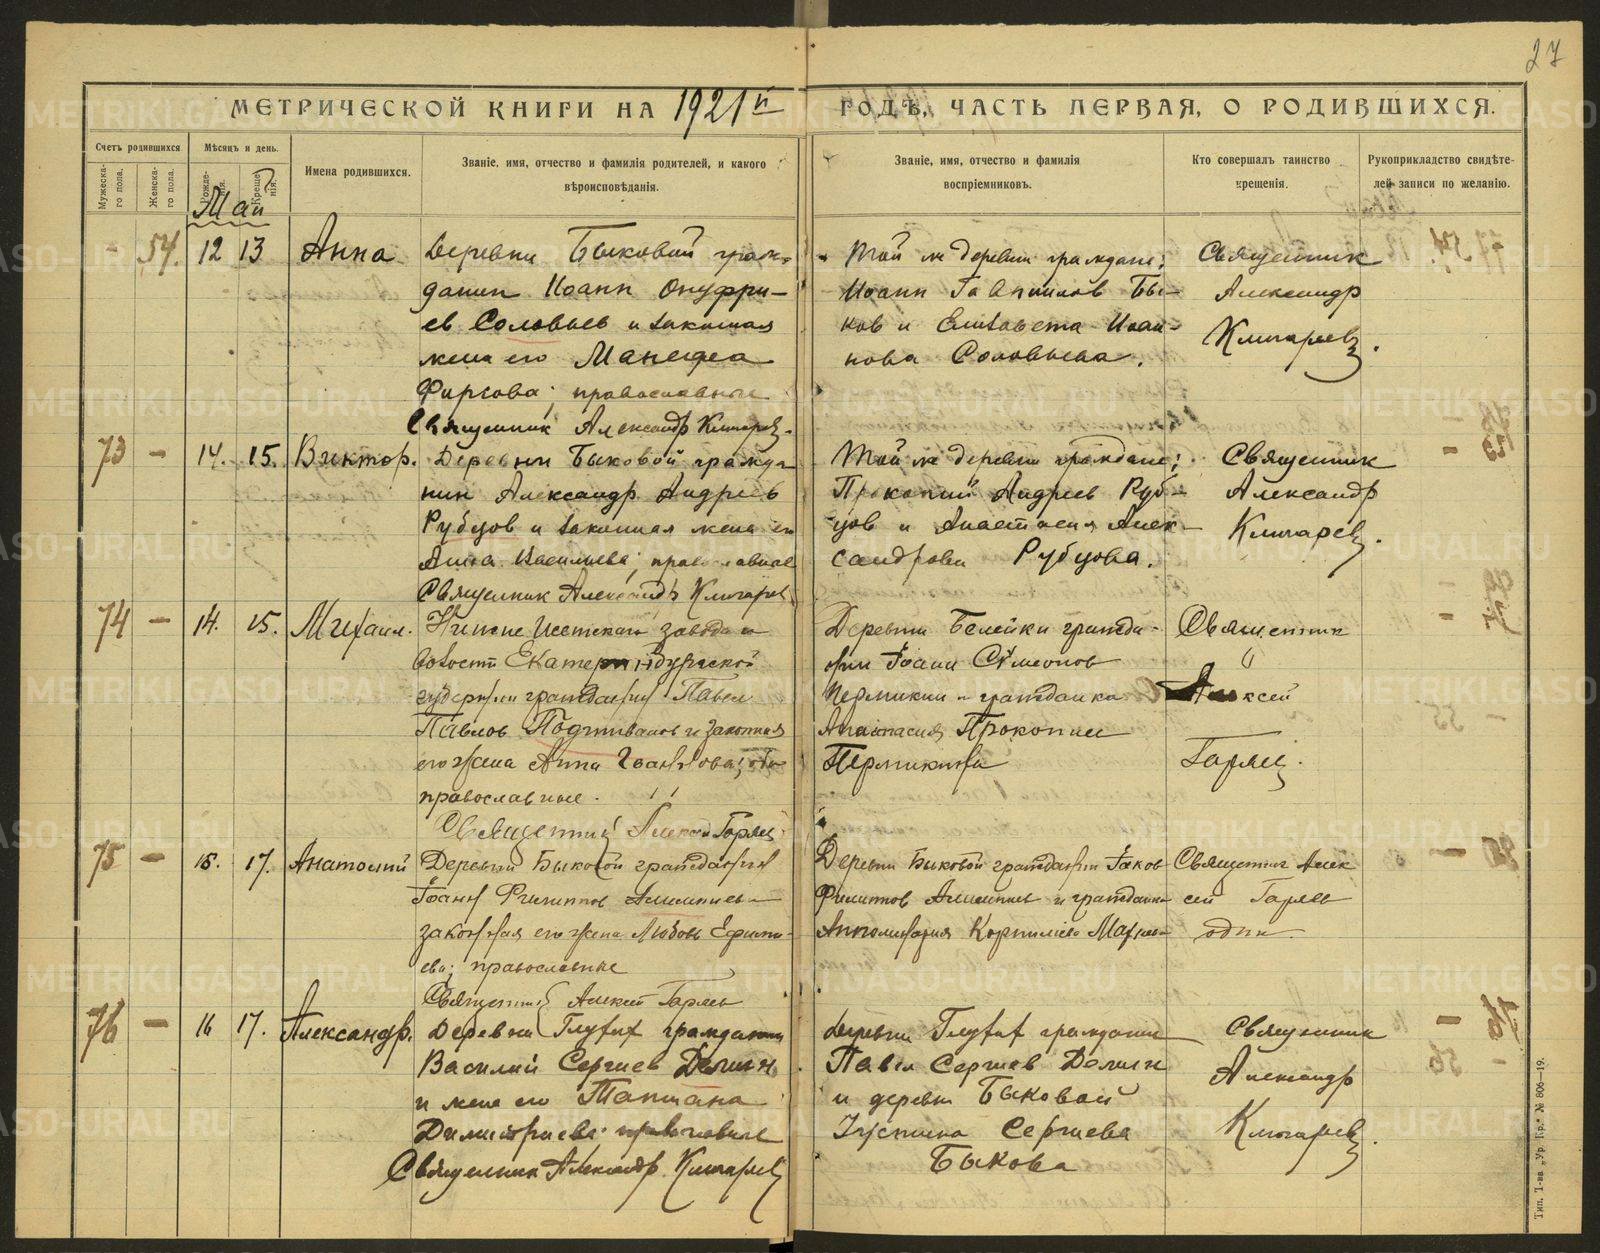 27
МЕТРИЧЕСКОЙ КНИГИ НА 1921й ГОДЪ, ЧАСТЬ ПЕРВАЯ, О РОДИВШИХСЯ.
Счетъ родившихся
Мужеска-го пола.
Женска-го пола.
Мѣсяцъ и день.
Рожде-нія.
Креще-нія.
Имена родившихся.
Званіе, имя, отчество и фамилія родителей, и какого
вѣроисповѣданія.
Званіе, имя, отчество и фамилія
воспріемниковъ.
Кто совершалъ таинство
крещенія.
Рукоприкладство свидѣте-
лей записи по желанію.
Май
- 54. 12 13 Анна
Деревни Быковой граж-
данин Иоанн Онуфри-
ев Соловьев и законная
жена его Манефа
Фирсова; православные
Священник Александр Ключарев.
Той же деревни граждане:
Иоанн Гавриилов Бы-
ков и Елизавета Иоан-
нова Соловьева.
Священник
Александр
Ключарев.
73 - 14. 15. Виктор.
Деревни Быковой гражда
нин Александр Андреев
Рубцов и законная жена его
Анна Васильева; православные
Священник Александр Ключарев.
Той же деревни граждане;
Прокопий Андреев Руб-
цов и Анастасия Алек-
сандрова Рубцова.
Священник
Александр
Ключарев.
74 - 14. 15. Михаил.
Нижне Исетскаго завода и
волости Екатеринбургской
губернии гражданин Павел
Павлов и законная
его жена Анна Иванова; оба
православные.
Священник Алексей Горяев
Деревни гражда-
нин Іоанн Симеонов
Пермикин и гражданка
Анастасия Прокопиева
Пермикина
Священник
"
Алексей
Горяев.
75 - 15. 17. Анатолий
Деревни Быковой гражданин
Іоанн Филиппов
законная его жена Любовь Ефимо-
ева; православные
Священник Алексей Горяев
Деревни Быковой гражданин Іаков
Филиппов и гражданка
Апполинария Корнилиева
Священник Алек
сей Горяев
один.
76 - 16 17. Александр.
Деревни Глухих гражданин
Василий Сергиев Демин
и жена его Татиана
Димитриева; православные
Священник Александр Ключарев
Деревни Глухих гражданин
Павел Сергиев Демин
и деревни Быковой
Иустина Сергиева
Быкова
Священник
Александр
Ключарев.
Тип. Т-ва „Ур. Кр.“ № 806—19.
METRIKI.GASO-URAL.RU